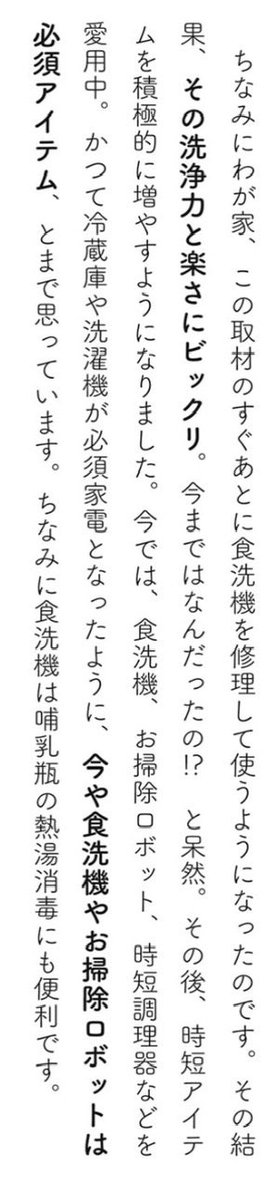 ちなみにわが家、この取材のすぐあとに食洗機を修理して使うようになったのです。その結
果、その洗浄力と楽さにビックリ。今まではなんだったの!?　と呆然。その後、時短アイテ
ムを積極的に増やすようになりました。今では、食洗機、お掃除ロボット、時短調理器などを
愛用中。かつて冷蔵庫や洗濯機が必須家電となったように、今や食洗機やお掃除ロボットは
必須アイテム、とまで思っています。ちなみに食洗機は哺乳瓶の熱湯消毒にも便利です。